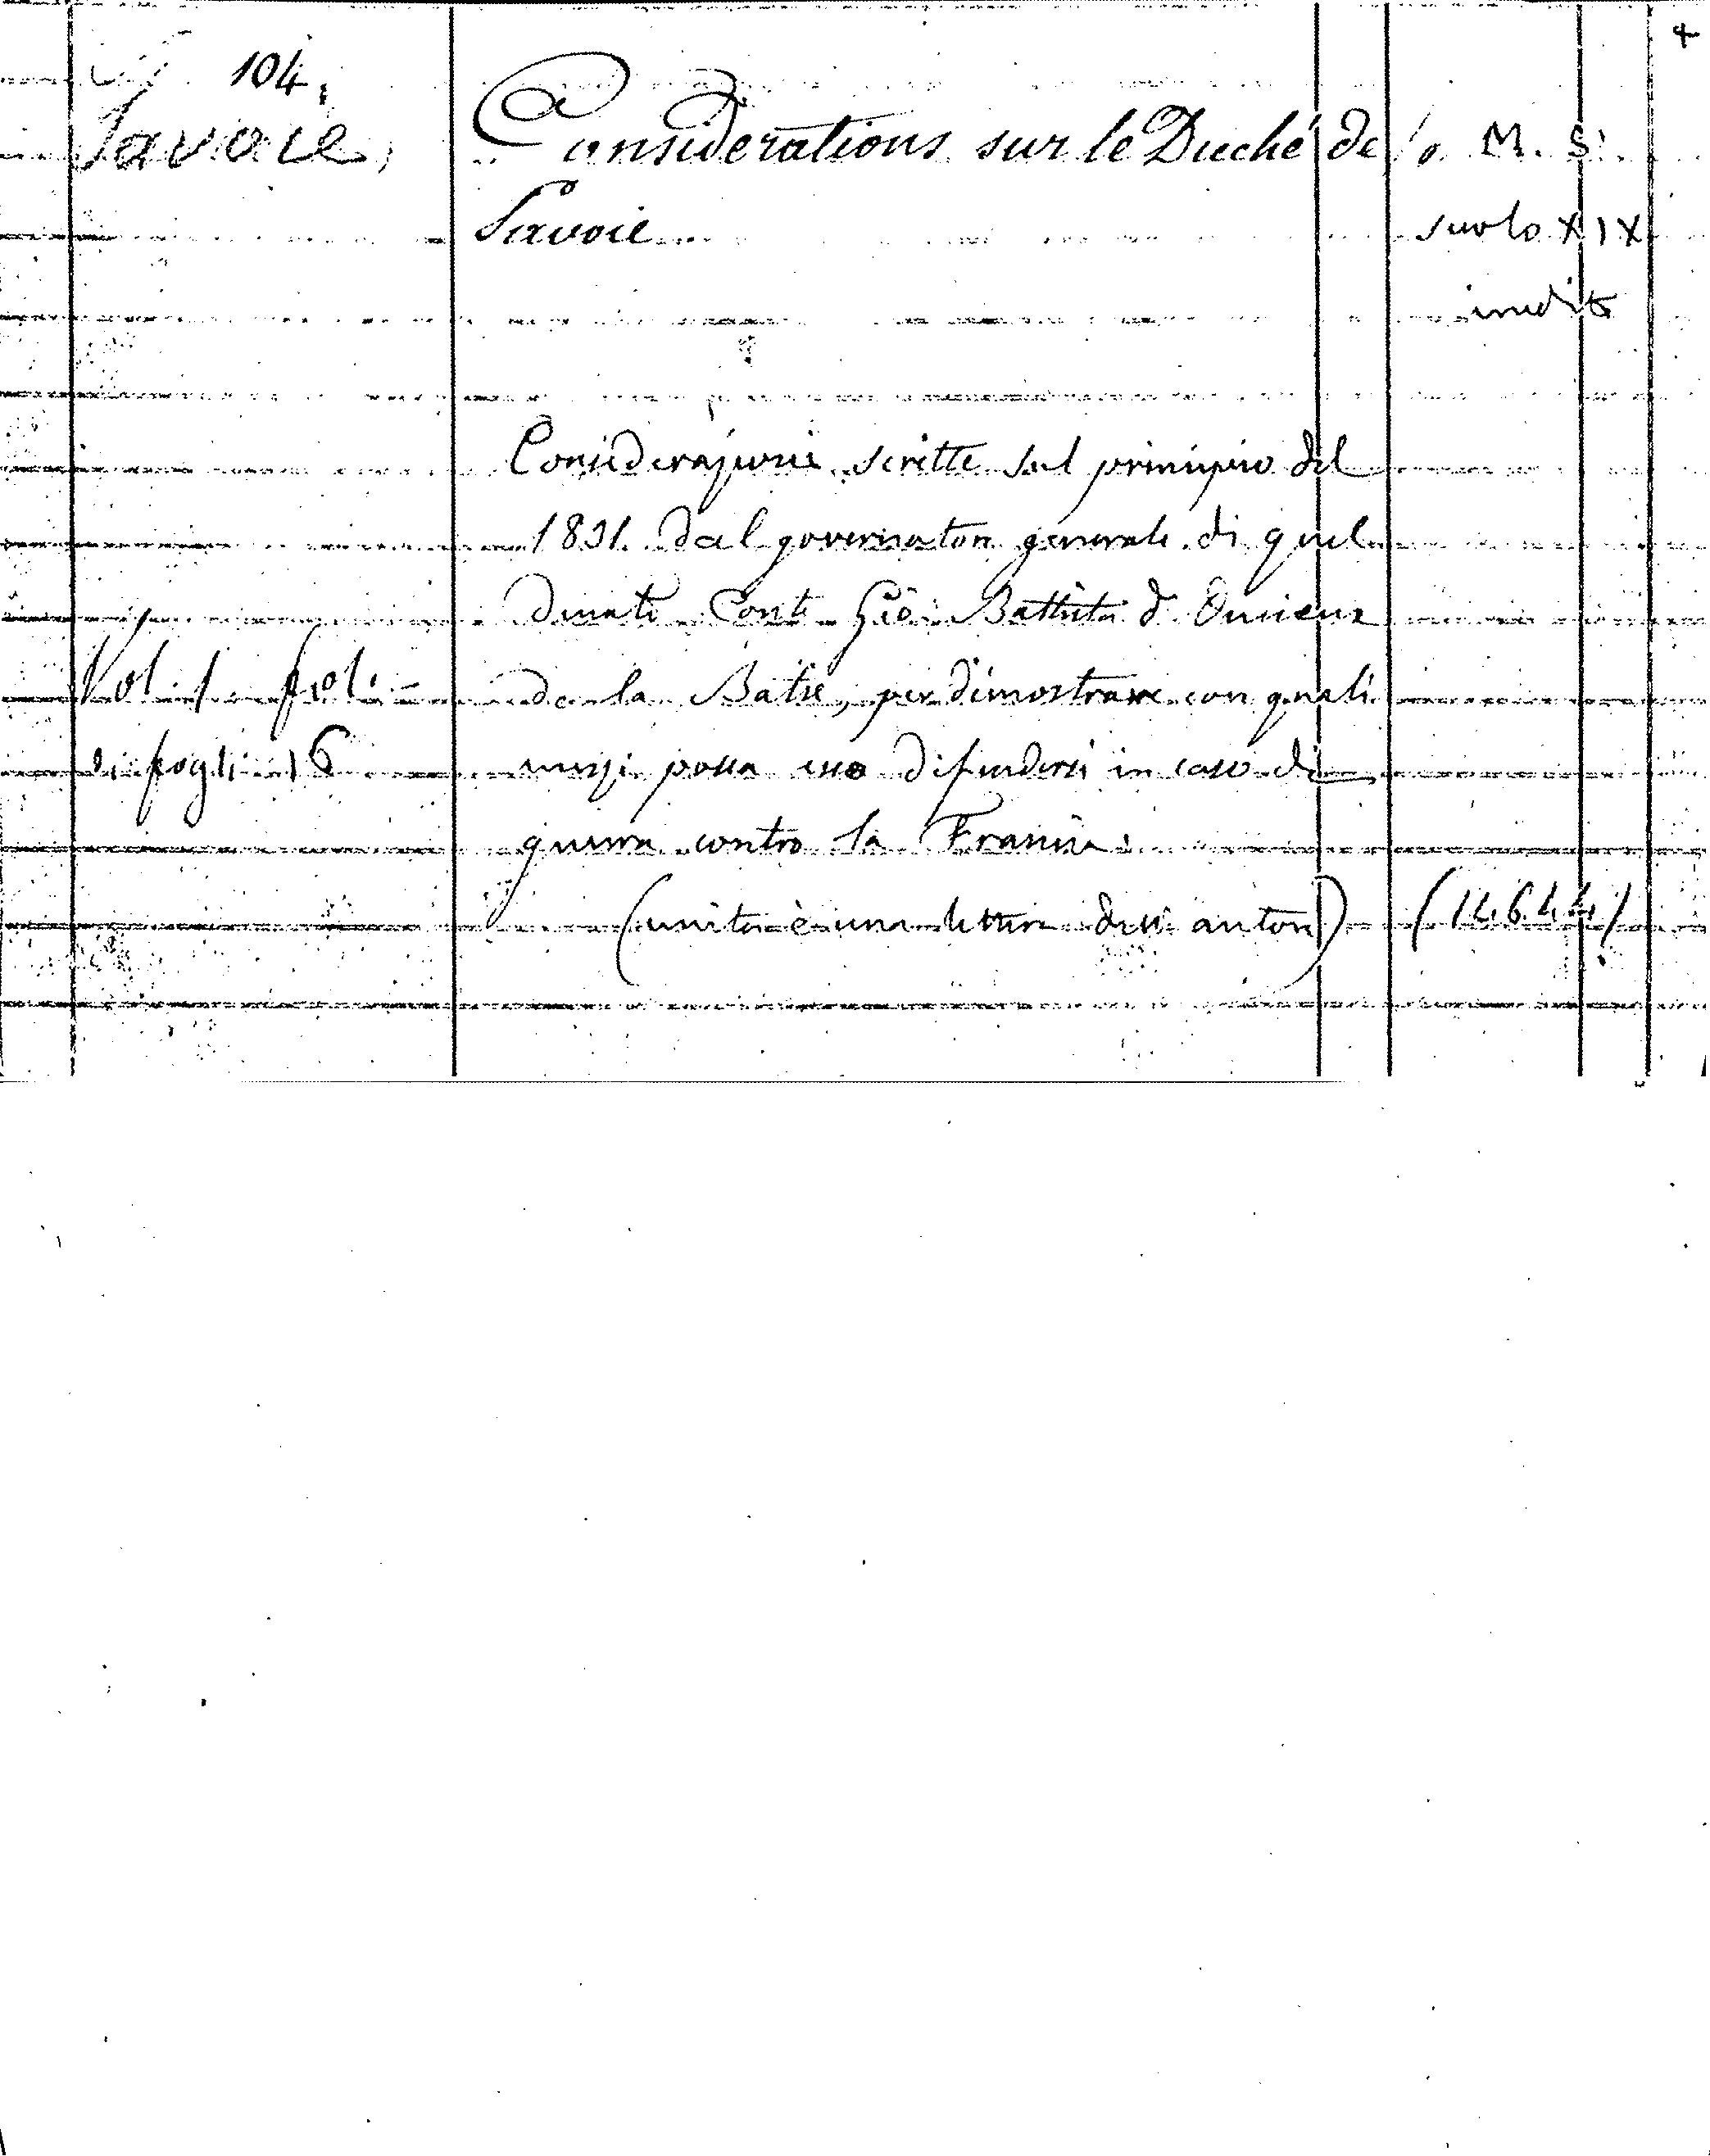 104.
Savoie
Considerations sur le Duché de
Savoie
M. S.
secolo XIX
inedito
Considerazioni scritte sul principio del
1831. dal governatore generale di quel
ducato Conte Gio: Battista d'Oncieux
de la Batie, per dimostrare con quali
mezzi possa esso difendersi in caso di
guerra contro la Francia.
(unita è una lettera dell'autore)
Vol. 1. fol.
di fogli 16
(14644)